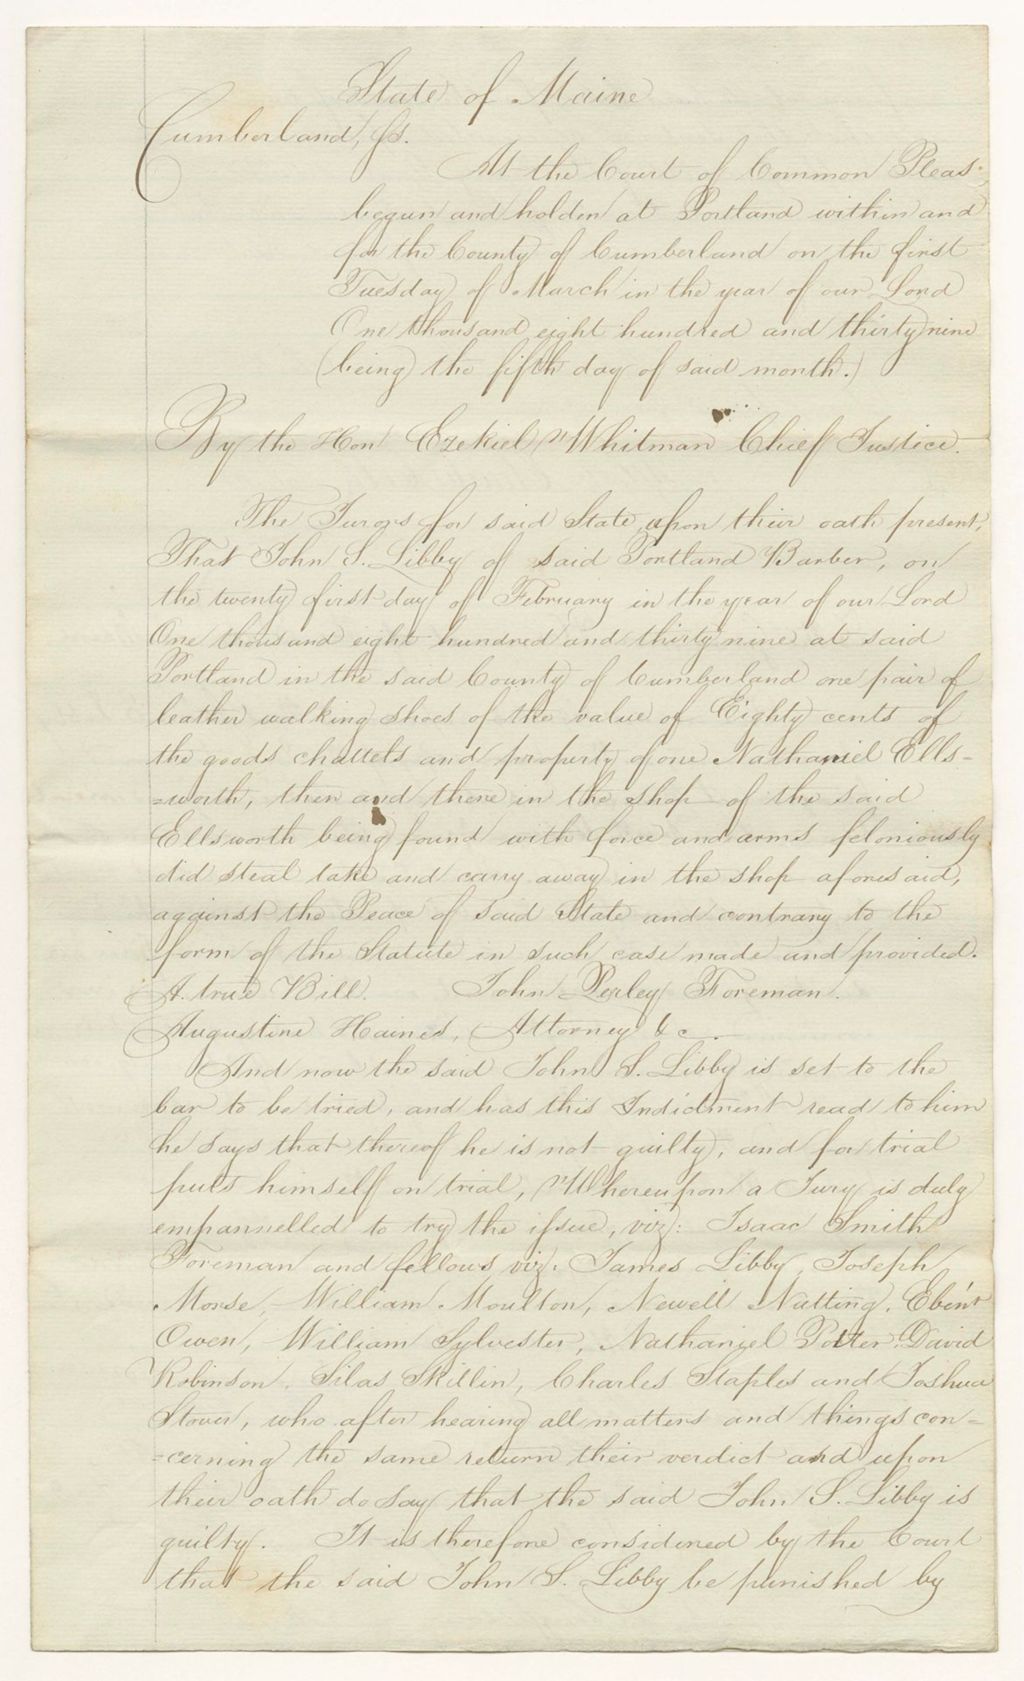 State of Maine
Cumberland, ss.
At the Court of Common Pleas
begun and holden at Portland within and
for the County of Cumberland on the first
Tuesday of March in the year of our Lord
One thousand eight hundred and thirty nine
(being the fifth day of said month.)
By the Hon Ezekiel Whitman Chief Justice.
The Jurors for said State upon their oath present,
That John S. Libby of said Portland Barber, on
the twenty first day of February in the year of our Lord
One thousand eight hundred and thirty nine at said
Portland in the said County of Cumberland one pair of
leather walking shoes of the value of Eighty cents of
the goods chattels and property of one Nathaniel Ells-
-worth, then and there in the shop of the said
Ellsworth being found with force and arms feloniously
did steal take and carry away in the shop aforesaid,
against the Peace of said State and contrary to the
form of the Statute in such case made and provided.
A true Bill. John Perley Foreman.
Augustine Haines, Attorney &c
And now the said John S. Libby is set to the
bar to be tried, and has this Indictment read to him
he says that thereof he is not guilty, and for trial
puts himself on trial, Whereupon a Jury is duly
empannelled to try the issue, viz: Isaac Smith
Foreman and fellows viz. James Libby, Joseph
Morse, William Moulton, Newell Nutting, Eben'r
Owen, William Sylvester, Nathaniel Potter, David
Robinson, Silas Skillin, Charles Staples and Joshua
Stover, who after hearing all matters and things con-
-cerning the same return their verdict and upon
their oath do say that the said John S. Libby is
guilty. It is therefore considered by the Court
that the said John S. Libby be punished by